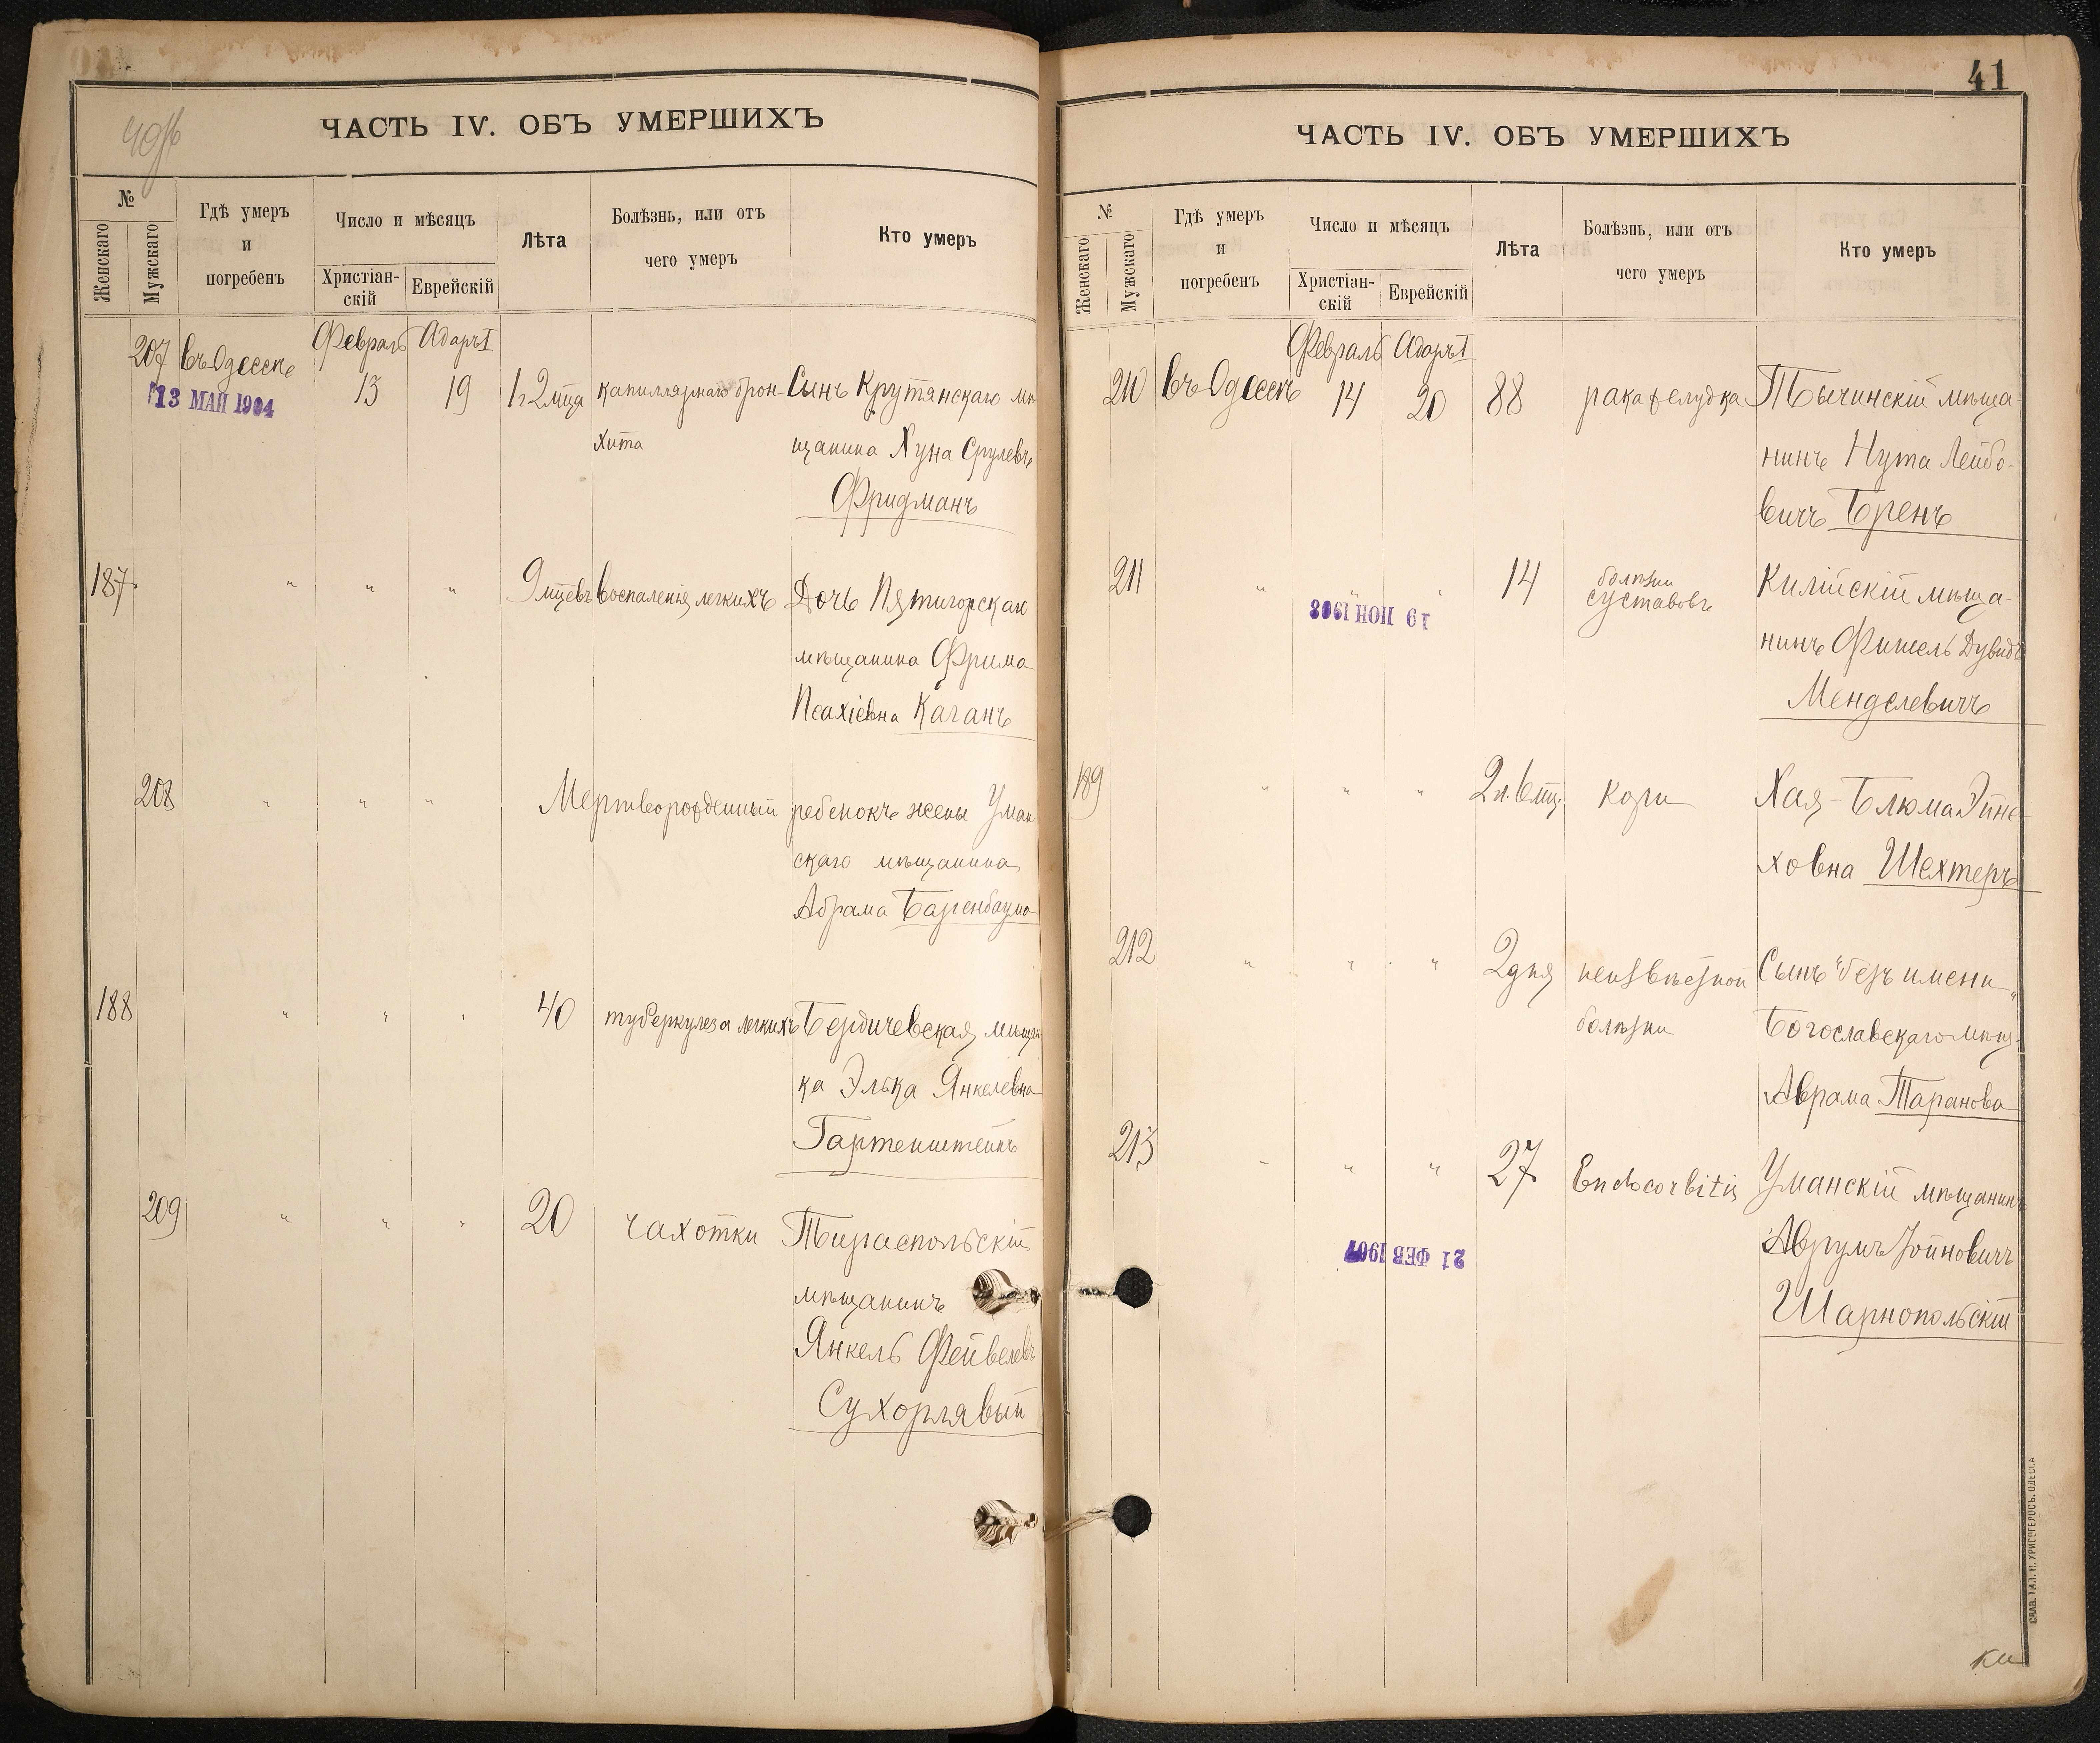 40об
ЧАСТЬ IV. ОБЪ УМЕРШИХЪ
№
Женскаго
Мужскаго
Гдѣ умеръ
и
погребенъ
Число и мѣсяцъ
Христіан-
скій
Еврейскій
Лѣта
Болѣзнь, или отъ
чего умеръ
Кто умеръ
Февраль Адаръ I
207 въ Одессѣ 13 19 1 г 2 мца капиллярнаго брон- Сынъ Крутянскаго мѣ
13 МАЙ 1904
хита щанина Хуна Срулевъ
Фридманъ
187 " " " 9 мцевъ воспаленія легкихъ Дочь Пятигорскаго
мѣщанина Фрима
Псахіевна Каганъ
208 " " " Мертворожденный ребенокъ жены Уман
скаго мѣщанина
Абрама Баренбаума
188 " " " 40 туберкулеза легкихъ Бердичевская мѣщан
ка Элька Янкелевна
Гартенштейнъ
209 " " " 20 чахотки Тираспольскій
мѣщанинъ
Янкель Фейвелевъ
Сухорлявый
41
ЧАСТЬ IV. ОБЪ УМЕРШИХЪ
№
Женскаго
Мужскаго
Гдѣ умеръ
и
погребенъ
Число и мѣсяцъ
Христіан-
скій
Еврейскій
Лѣта
Болѣзнь, или отъ
чего умеръ
Кто умеръ
Февраль Адаръ I
210 въ Одессѣ 14 20 88 рака желудка Тычинскій мѣща-
нинъ Нута Лейбо-
вичъ Бренъ
211 " " " 14 болѣзни суставовъ Килійскій мѣща-
19 ІЮН 1908
нинъ Фишель Дувидъ
Менделевичъ
189 " " " 2 л. 6 мц. кори Хая-Блюма Эйне-
ховна Шехтеръ
212 " " " 2 дня неизвѣстной Сынъ "безъ имени"
болѣзни Богославскаго мѣщ.
Аврама Таранова
213 " " " 27 Endocorbitis Уманскій мѣщанинъ
21 ФЕВ 1907
Аврумъ Іойновичъ
Шарнопольскій
СЛАВ. ТИП. Н. ХРИСОГЕЛОСЪ. ОДЕССА